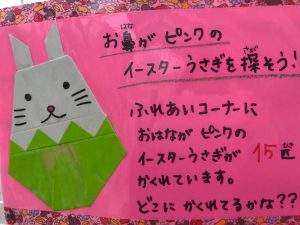 お鼻がピンクの
はな
イースターうさぎを探そう!
さが
ふれあいコーナーに
おはながピンクの
イースターうさぎが 15匹
ひき
かくれています。
どこにかくれてるかな??